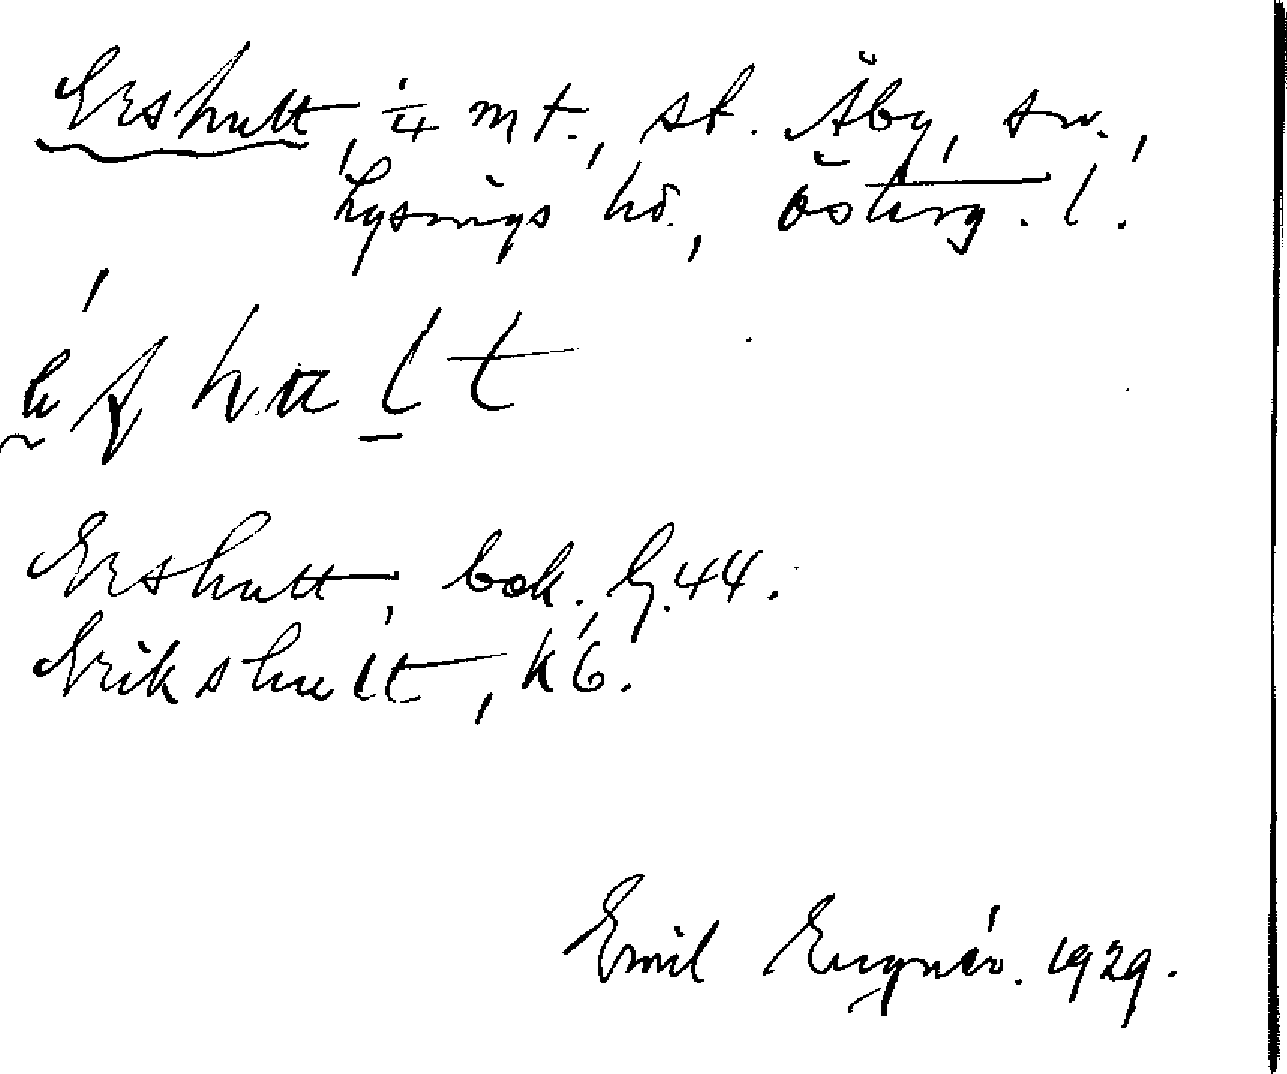 Ershult, 1/4 mt., st. Åby, sn.,
Lysings hd., Österg. l.
hult
Ershult, bok., Gj. 44.
Erikshult, k6.
Emil 1929.